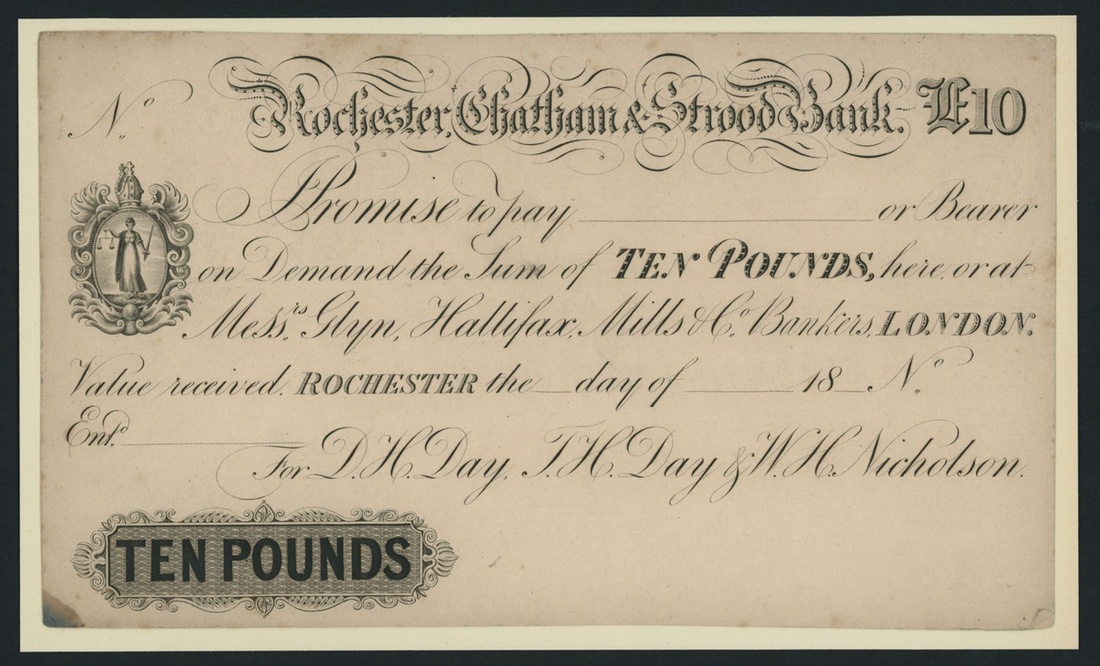 No. Rochester, Chatham & Strood Bank. £10
I Promise to pay or Bearer
on Demand the Sum of TEN POUNDS, here, or at
Messrs. Glyn, Hallifax, Mills & Co. Bankers, LONDON.
Value received. ROCHESTER the day of 18 No.
Entd.
For D.H. Day, T.H. Day & W.H. Nicholson.
TEN POUNDS